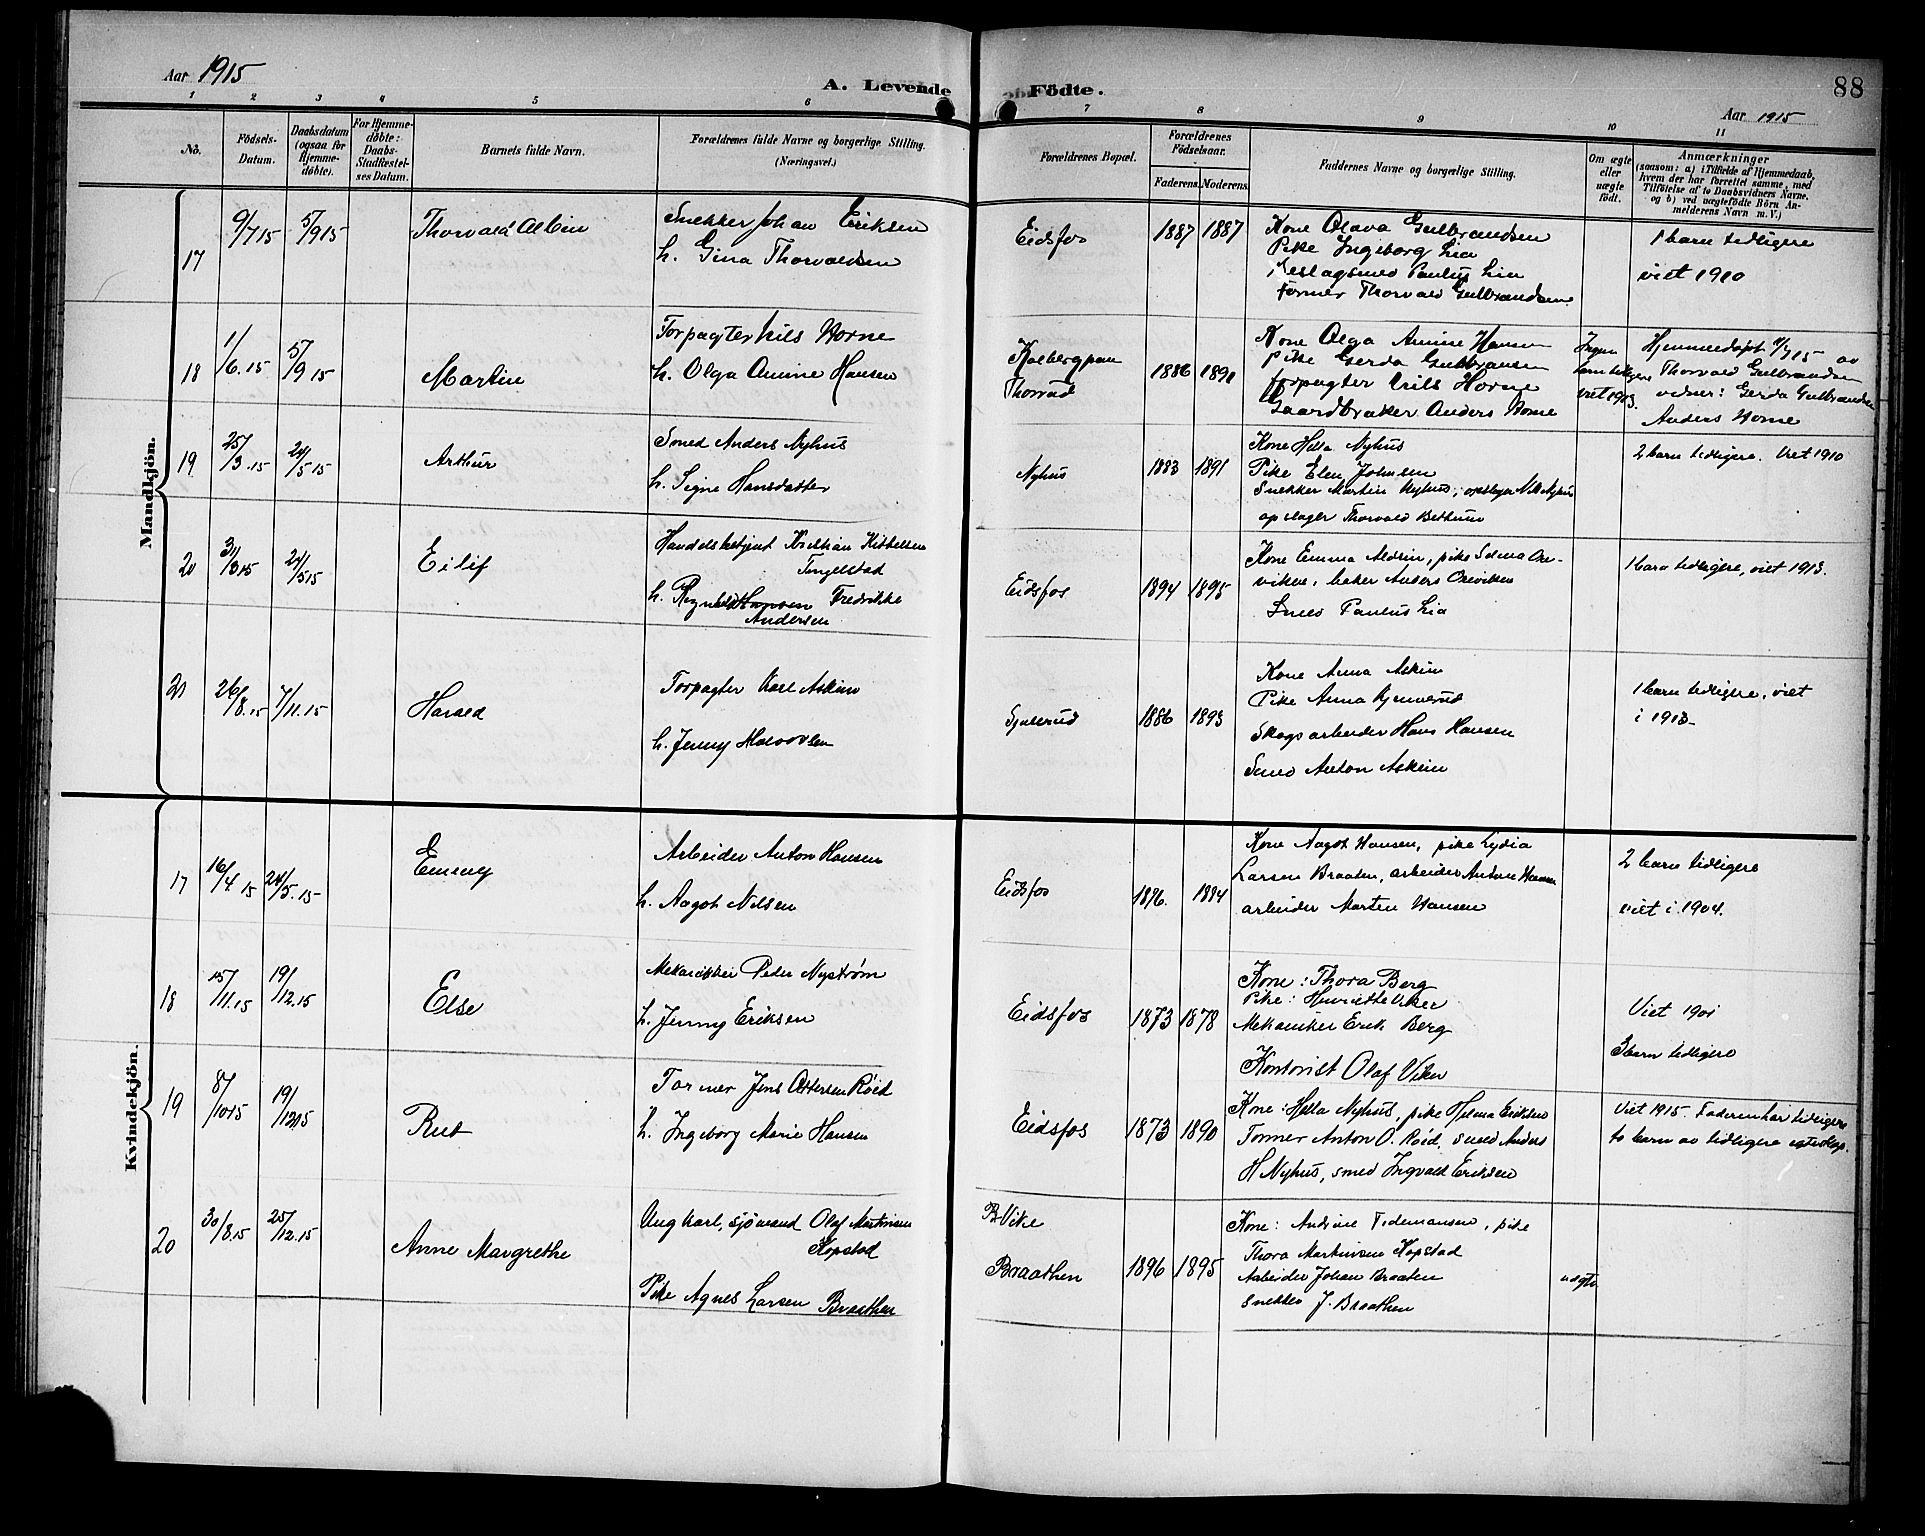 88
Aar 1915
A. Levende Födte.
Aar 1915
1 2 3 4 5 6 7 8 9 10 11
Nô.
Födsels-
Datum.
Daabsdatum
(ogsaa for
Hjemme-
döbte).
For Hjemme-
döbte:
Daabs-
Stadfæstel-
ses Datum.
Barnets fulde Navn.
Forældrenes fulde Navne og borgerlige Stilling.
(Næringsvei.)
Forældrenes Bopæl.
Forældrenes
Födselsaar.
Faderens. Moderens.
Faddernes Navne og borgerlige Stilling.
Om ægte
eller
uægte
födt.
Anmærkninger
(saasom: a) i Tilfælde af Hjemmedaab,
hvem der har forrettet samme, med
Tilföielse af to Daabsvidners Navne,
og b) ved uægtefödte Börn An-
melderens Navn m. V.)
Mandkjön.
17
9/7 15
5/9 15
Thorvald Albin
Snekker Johan Eriksen
h. Gina Thorvaldsen
Eidsfos
1887 1887
Kone Olava Gulbrandsen
Pike Ingeborg Lia
Beslagsmed Paulus Lia
Former Thorvald Gulbrandsen
1 barn tidligere
viet 1910
18
1/6.15
5/9 15
Martin
Forpagter Nils Horne
h. Olga Amine Hansen
Thorrud
1886 1891
Kone Olga Amine Hansen
Pike Gerda Gulbransen
forpagter Nils Horne
Gaardbruker Anders Horne
Ingen
barn tidligere
viet 1913.
Hjemmedøpt 4/7 15 av
Thorvald Gulbrandsen
vidner: Gerda Gulbrandsen
Anders Horne
19
25/3.15
24/5 15
Arthur
Smed Anders Nyhus
h. Signe Hansdatter
Nyhus
1883 1891
Kone Hilla Nyhus
Pike Elen Johnsen
Snekker Martin Nyhus,
opslager Thorvald
2 barn tidligere. Viet 1910
20
31/3 15
24/5 15
Eilif
Handelsbetjent Kristian Kittelsen
Tengelstad
h. Fredrikke
Andersen
Eidsfos
1894 1895
Kone Emma Aldrin, pike Selma Ore-
viken, baker Anders Oreviken
Smed Paulus Lia
1 barn tidligere, viet 1913.
21
26/8.15
7/11.15
Harald
Forpagter Karl Askim
h. Jenny Halvorsen
1886 1893
Kone Anna Askim
Pike Anna
Skogsarbeider Hans Hansen
Smed Anton Askim
1 barn tidligere, viet
i 1913.
Kvindekjön.
17
16/4 15
24/5.15
Emmy
Arbeider Anton Hansen
h. Aagot Nilsen
Eidsfos
1876. 1884
Kone Aagot Hansen, pike Lydia
Larsen Braaten, arbeider Anton Hansen
arbeider Morten Hansen
2 barn tidligere
viet i 1904.
18
15/11.15
19/12.15
Else
Mekaniker Peder Nystrøm
h. Jenny Eriksen
Eidsfos
1873 1878
Kone: Thora Berg
Pike: Henriette Viker
Mekaniker Erik Berg
Kontorist Olaf Viker
Viet 1901
3 barn tidligere
19
8/10 15
19/12 15
Rut
Former Jens Ottersen Røed
h. Ingeborg Marie Hansen
Eidsfos
1873 1890
Kone: Hilla Nyhus, pike Helma Eriksen
Former Anton O. Røid, smed Anders
H Nyhus, smed Ingvald Eriksen
Viet 1915. Faderen har tidligere
to barn av tidligere egteskap.
20
30/8.15
25/12.15
Anne Margrethe
Ung karl, sjømand Olaf Martinsen
Kopstad
Pike Agnes Larsen Braathen
Vike
Braathen
1896 1895
Kone: Andrine Tidemansen, pike
Thora Martinsen Kopstad
Arbeider Johan Braaten
Snekker J. Braathen
uegte